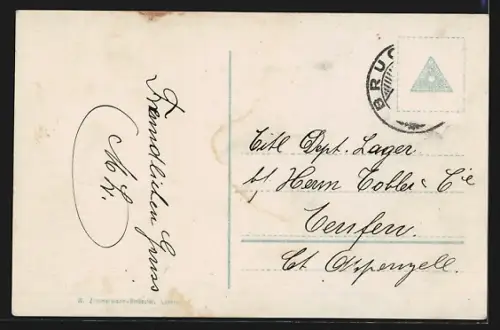 Freundlichen Gruss
M L.
BRUG
Titl Dept. Lager
b/ Herrn Tobler & Cie
Teufen.
Ct. Appenzell.